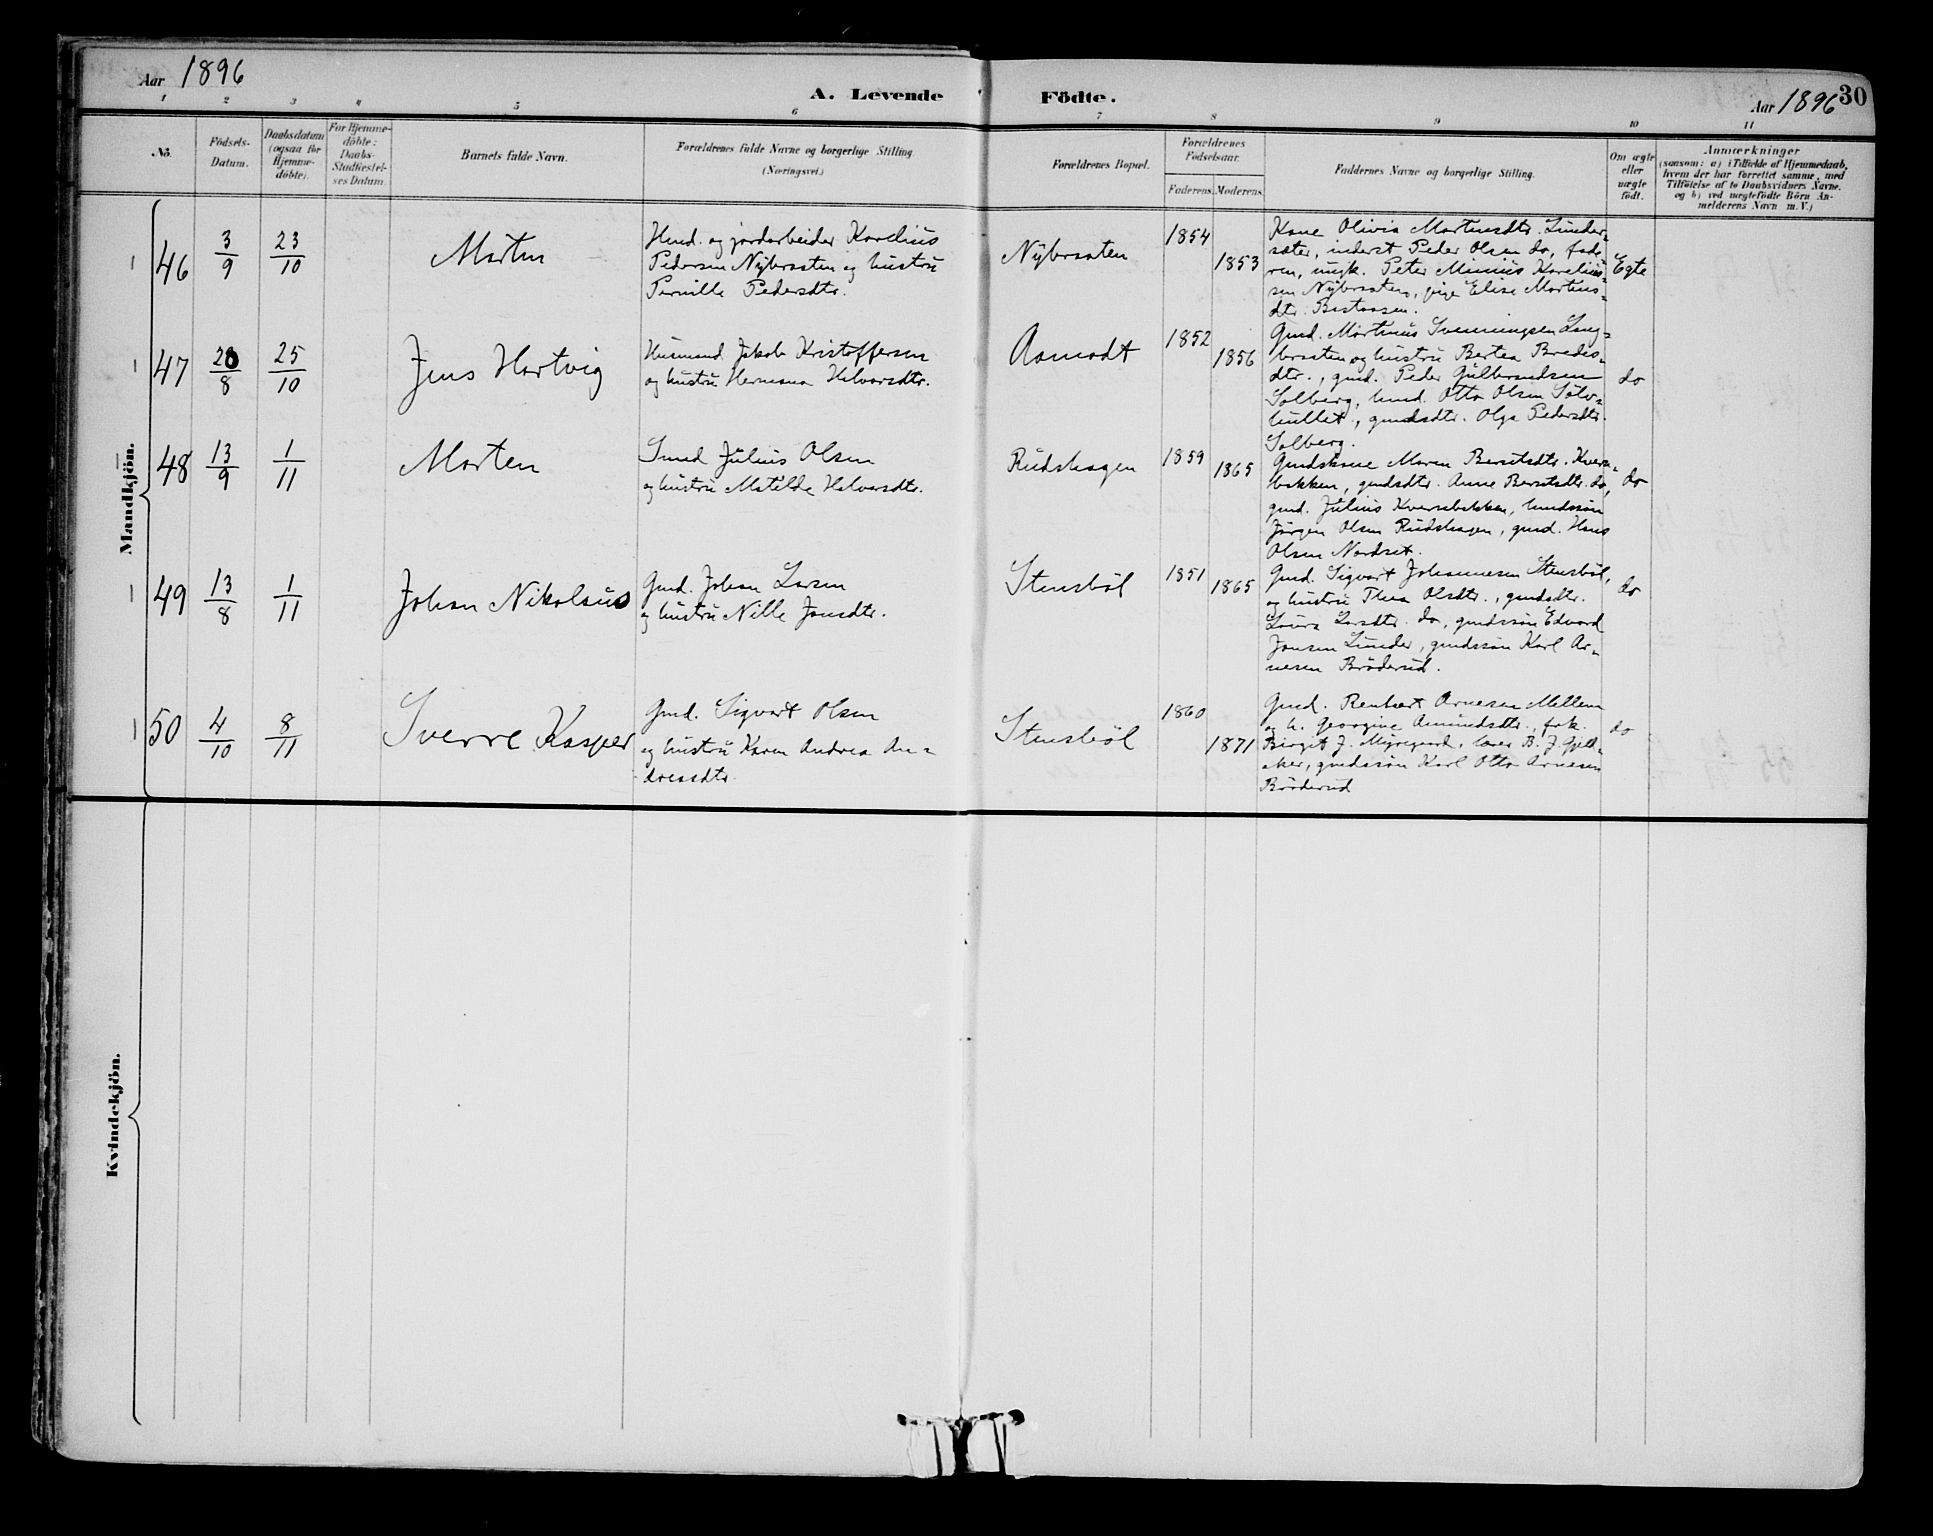 Aar 1896
A. Levende Födte.
Aar 1896 30
1 2 3 4 5 6 7 8 9 10 11
No.
Födsels-
Datum.
Daabsdatum
(ogsaa for
Hjemme-
döbte).
For Hjemme-
döbte:
Daabs-
Stadfæstel-
ses Datum.
Barnets fulde Navn.
Forældrenes fulde Navne og borgerlige Stilling
(Næringsvei.)
Forældrenes Bopæl.
Forældrenes
Födselsaar.
Faderens. Moderens.
Faddernes Navne og borgerlige Stilling.
Om ægte
eller
uægte
födt.
Anmærkninger
(saasom: a) i Tilfælde af Hjemmedaab,
hvem der har forrettet samme, med
Tilföielse af to Daabsvidners Navne.
og b) ved uægtefödte Börn An-
melderens Navn m. V.)
Mandkjön.
46
3/9
23/10
Morten
Hmd. og jordarbeider Karelius
Pedersen Nÿbraaten og hustru
Pernille Pedersdtr.
Nÿbraaten
1854
1853
Kone Olivia Martinsdtr. Linder-
sæter, inderst Peder Olsen do, fade-
ren, ungk. Peter Minius Karelius-
sen Nÿbraaten, pige Elise Martins-
dtr.
Egte
47
28/8
25/10
Jens Hartvig
Husmand Jakob Kristoffersen
og hustru Hermana Halvorsdtr.
Aamodt
1852
1856
Gmd. Martinus Svenningsen Lang-
braaten og hustru Bertea Bredes-
dtr., gmd. Peder Gulbrandsen
Solberg, hmd. Otto Olsen Sølv-
hullet, gmdsdtr. Olga Pedersdtr.
Solberg.
do
48
13/9
1/11
Morten
Smed Julius Olsen
og hustru Matilde Halvorsdtr.
Rudshagen
1859
1865
Gmdskone Maren Berntsdtr. Kverne-
bakken, gmdsdtr. Anne Berntsdtr. do,
gmd. Julius Kvernebakken, hmdssøn
Jørgen Olsen Rudshagen, gmd. Hans
Olsen Nordset.
do
49
13/8
1/11
Johan Nikolaus
Gmd. Johan Larsen
og hustru Nille Jonsdtr.
Stensbøl
1851
1865
Gmd. Sigvart Johannesen Stensbøl,
og hustru Thea Olsdtr., gmdsdtr.
Laura Larsdtr. do, gmdssøn Edvard
Jansen Linder, gmdssøn Karl Ar-
nesen Brøderud.
do
50
4/10
8/11
Sverre Kasper
Gmd. Sigvart Olsen
og hustru Karen Andrea An-
dreasdtr.
Stensbøl
1860
1871
Gmd. Renhart Arnesen Mellem
og h. Georgine Amundsdtr., frk.
Birgit J. Myregaard, lærer B. J. Gjeld-
aker, gmdssøn Karl Otto Arnesen
Brøderud
do
Kvindekjön.